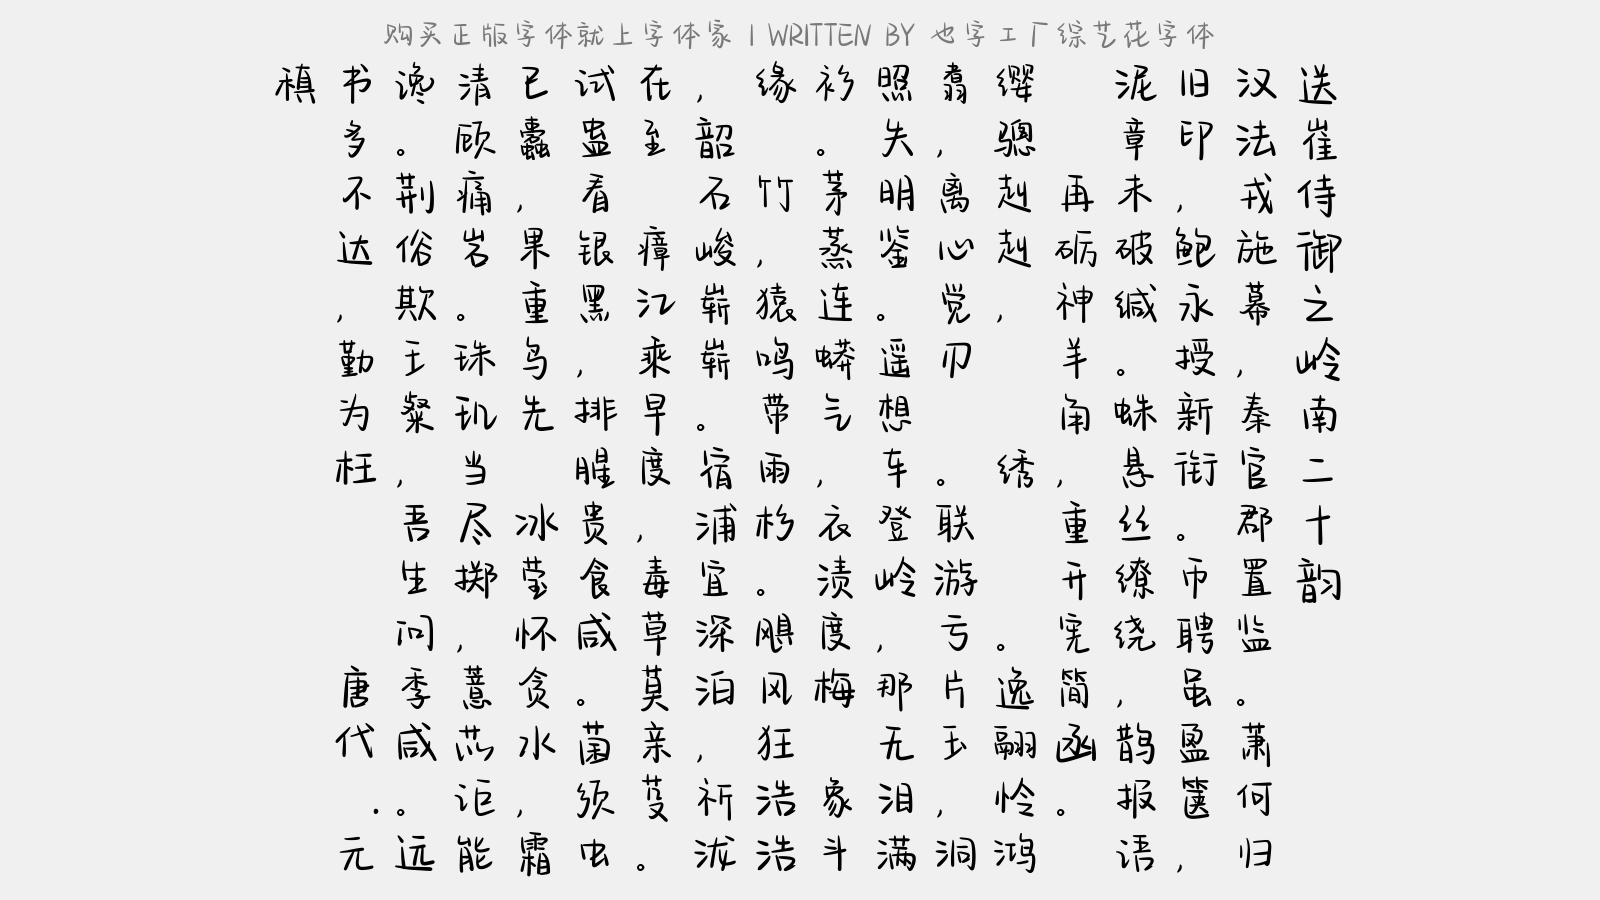 购买正版字体就上字体家 | WRITTEN BY 也字工厂综艺花字体
送崔侍御之岭南二十韵
汉法戎施幕，秦官郡置监。萧何归
旧印，鲍永授新衔。币聘虽盈箧，
泥章未破缄。蛛悬丝缭绕，鹊报语
再砺神羊角，重开宪简函。
缨骢赳赳，绣。逸翮怜鸿
翥，离心觉刃。联游亏片玉，洞
照失明鉴。遥想车登岭，那无泪满
衫。茅蒸连蟒气，衣渍度梅象斗
缘竹，猿鸣带雨杉。飓风狂浩浩
，韶石峻崭崭。宿浦宜深泊，祈泷
在至瘴江乘早度，毒草莫亲芟。
试蛊看银黑，排腥贵食咸。菌须虫
已蠹，果重鸟先冰莹怀贪水，霜
清顾痛岩。珠玑当尽掷，薏苡讵能
谗。荆俗欺王粲，吾生问季咸。远
书多不达，勤为枉
唐代.元
稹